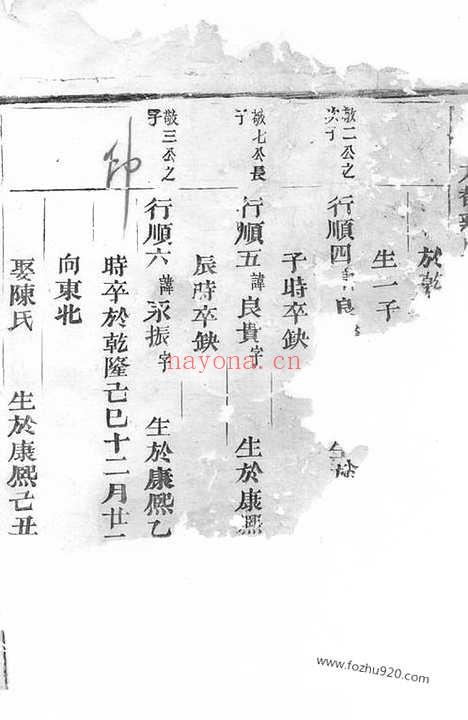 於乾
生一子
敬二公之
次子
行順四
良
子時卒缺
敬七公長
子
行順五 諱良貴字 生於康熙
辰時卒缺
敬三公之
子
行順六 諱永振字 生於康熙乙
時卒於乾隆己巳十二月廿二
向東北
娶陳氏 生於康熙己丑
nayona.cn
www.fozhu920.com